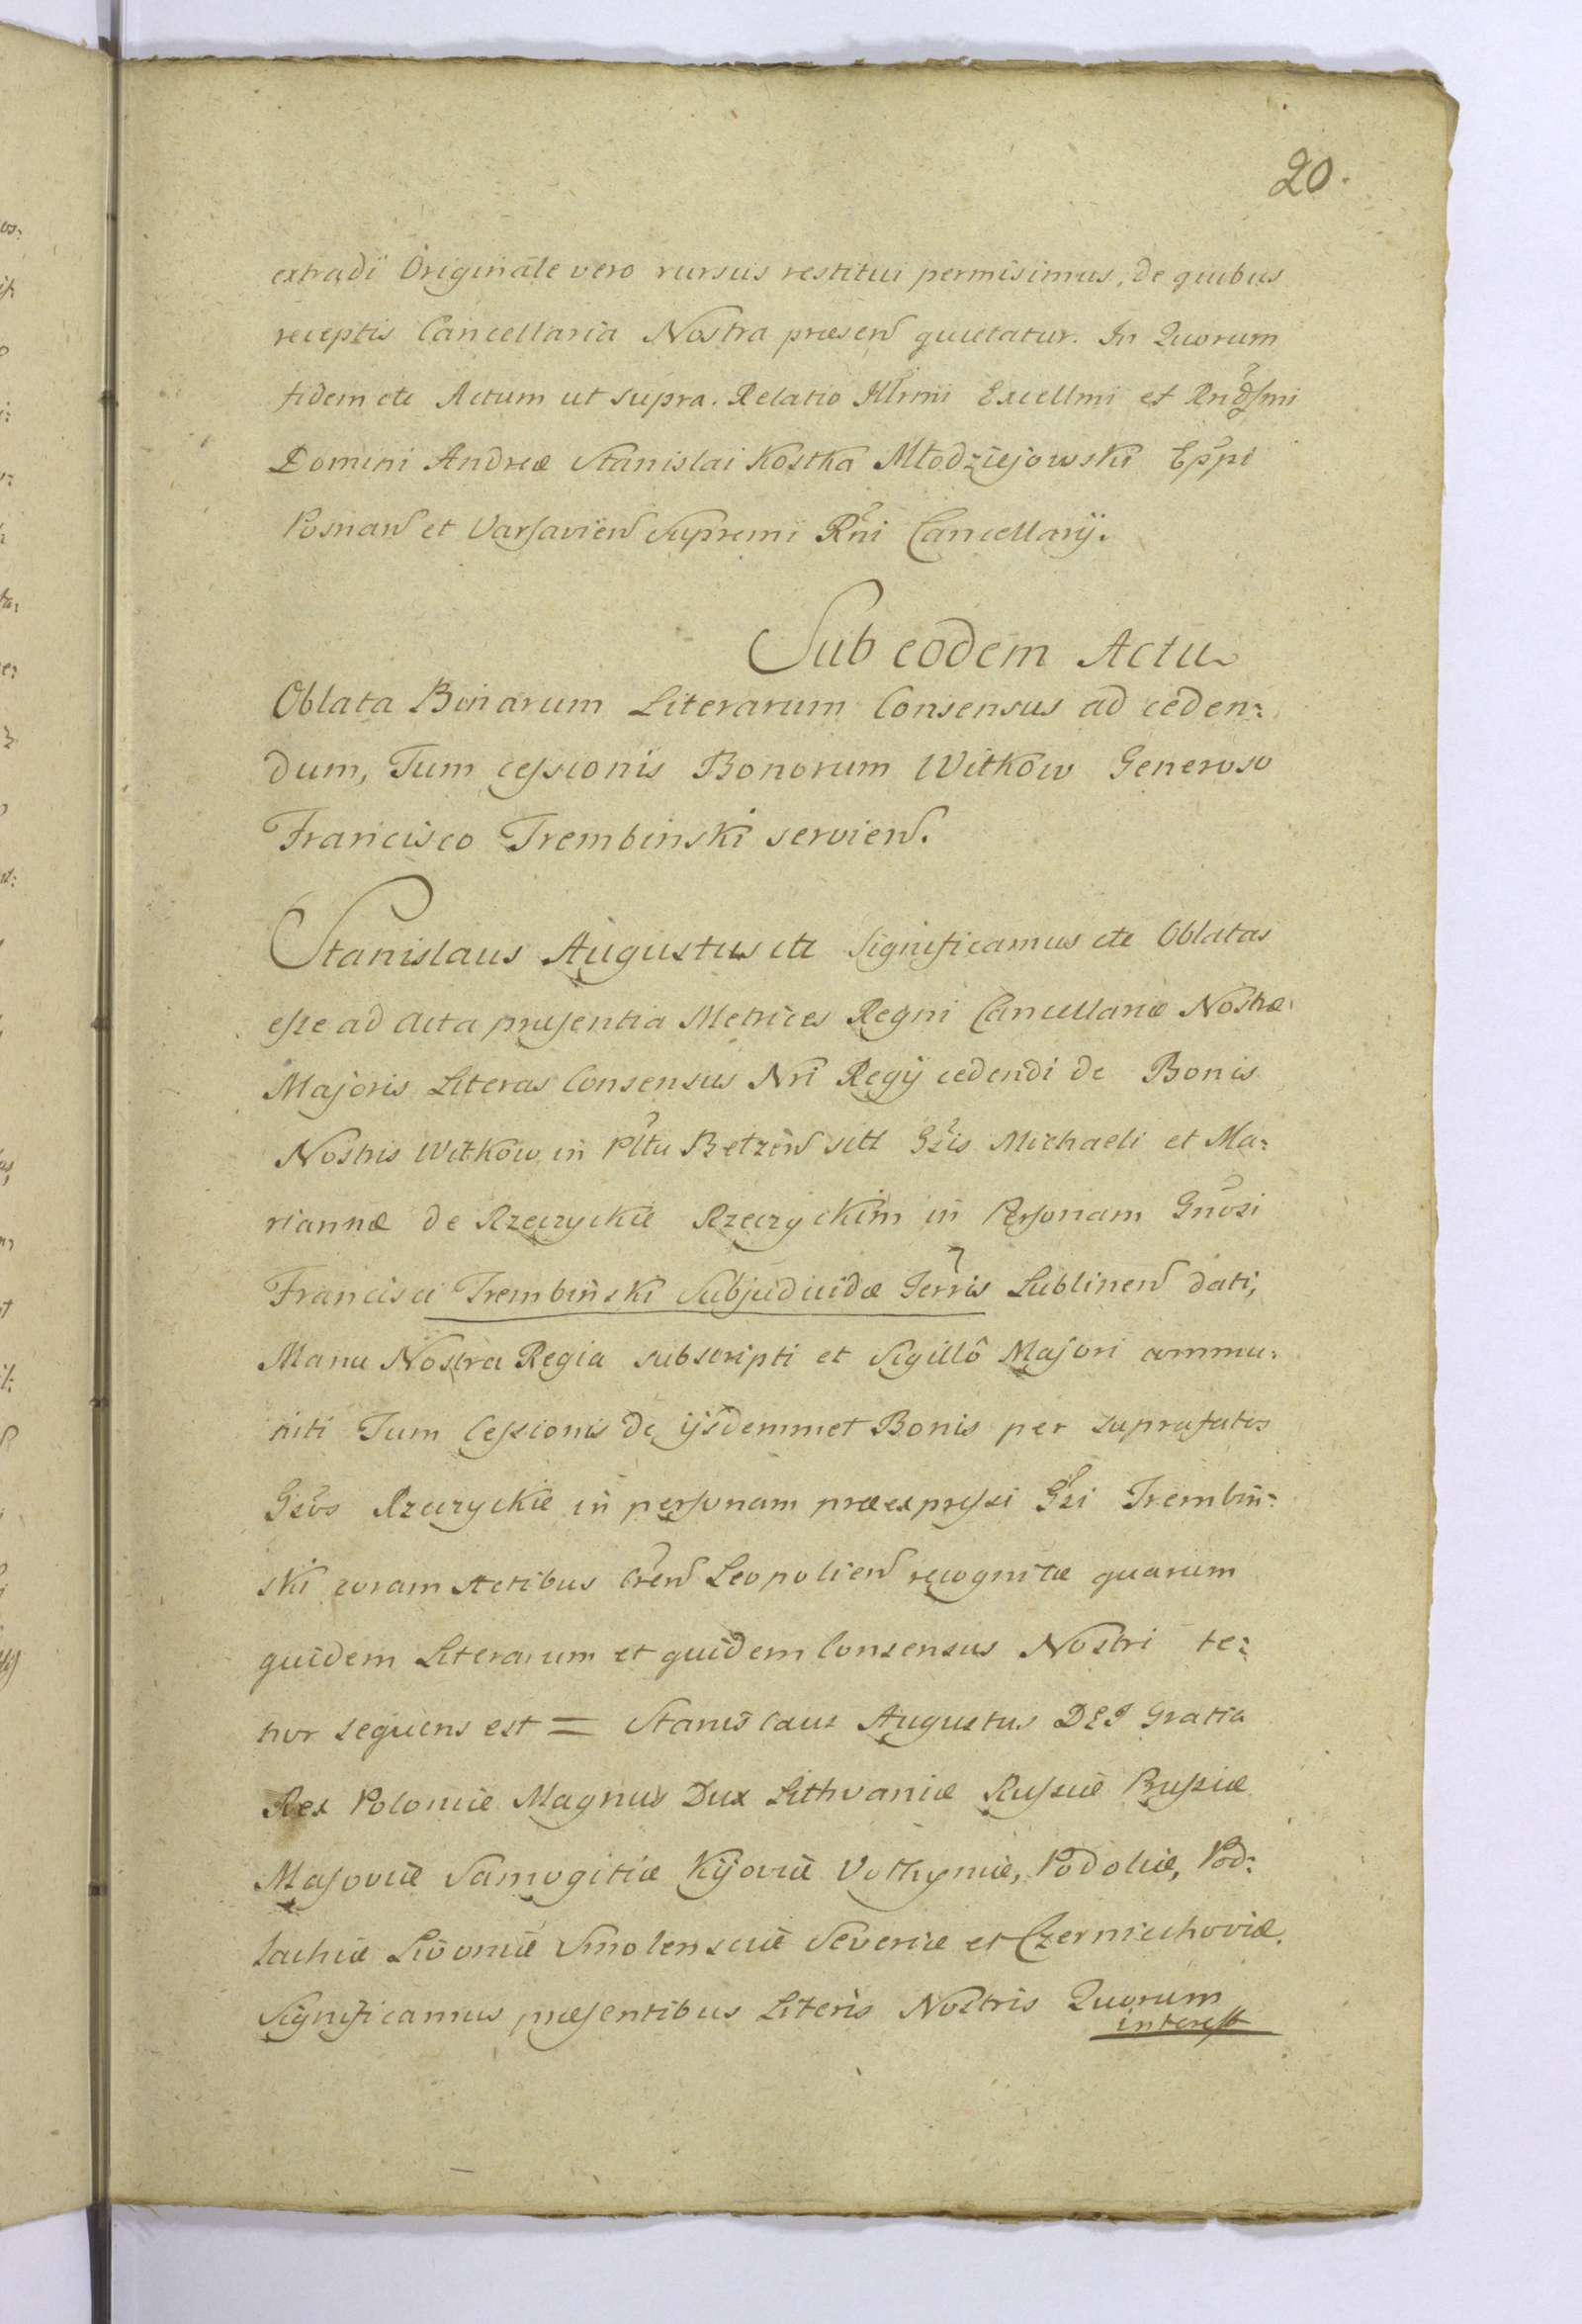 20.
extradi Originale vero rursus restitui permisimus, de quibus
receptis Cancellaria Nostra præsen quietatur. In Quorum
fidem etc Actum ut supra. Relatio Illrmi Excellmi et Rndsmi
Domini Andreæ Stanislai Kostka Młodziejowski Eppi
Posnan et Varsavien Supremi Rni Cancellarij.
Sub eodem Actu
Oblata Binarum Literarum Consensus ad ceden:
dum, Tum cessionis Bonorum Witkow Generoso
Francisco Trembinski servien.
Stanislaus Augustus etc Significamus etc Oblatas
esse ad Acta præsentia Metrices Regni Cancellariæ Nostræ
Majoris Literas Consensus Nri Regij cedendi de Bonis
Nostris Witkow in Plttu Betzen sitt Gsis Michaeli et Ma:
riannæ de Rzeczyckie Rzeczyckim in Personam Gnosi
Francisci Trembinski Subjudicidæ Terris Lublinen dati,
Manu Nostra Regia subscripti et Sigillo Majori commu:
niti Tum Cessionis de ijsdemmet Bonis per suprafatos
Gsos Rzeczyckie in personam præexpressi Gsi Trembin:
ski coram Actibus Cren Leopolien recognitæ quarum
quidem Literarum et quidem Consensus Nostri te:
nor sequens est = Stanislaus Augustus DEI Gratia
Rex Poloniæ Magnus Dux Lithvaniæ Russiæ Prussiæ
Masoviæ Samogitiæ Kijoviæ Volhyniæ, Podoliæ, Pod:
lachiæ Livoniæ Smolensciæ Severiæ et Czerniechoviæ.
Significamus præsentibus Literis Nostris Quorum
interest